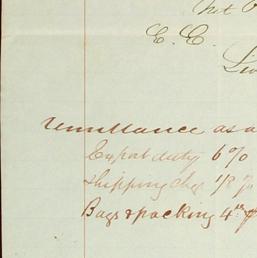 Net
E. E.
remittance as a
Export duty 6 %
Shipping chgs 1/8 %
Bags & packing 4